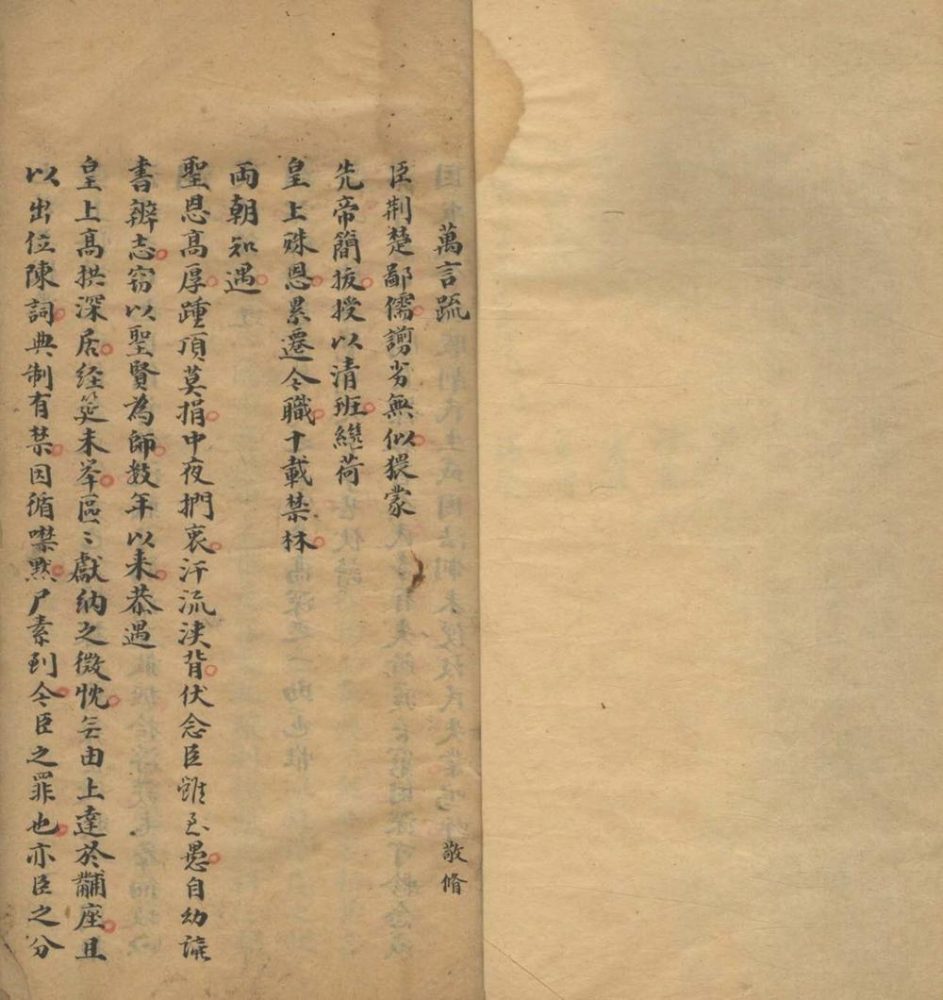 萬言疏 敬脩
臣荆楚鄙儒謭劣無似猥蒙
先帝簡拔授以清班纔荷
皇上殊恩累遷今職十載禁林
両朝知遇
聖恩高厚踵頂莫捐中夜捫衷汗流浹背伏念臣雖至愚自幼讀
書辨志窃以聖賢為師数年以来恭遇
皇上高拱深居経筵未举區〻獻納之微忱无由上達於黼座且
以出位陳詞典制有禁因循噤黙尸素到今臣之罪也亦臣之分